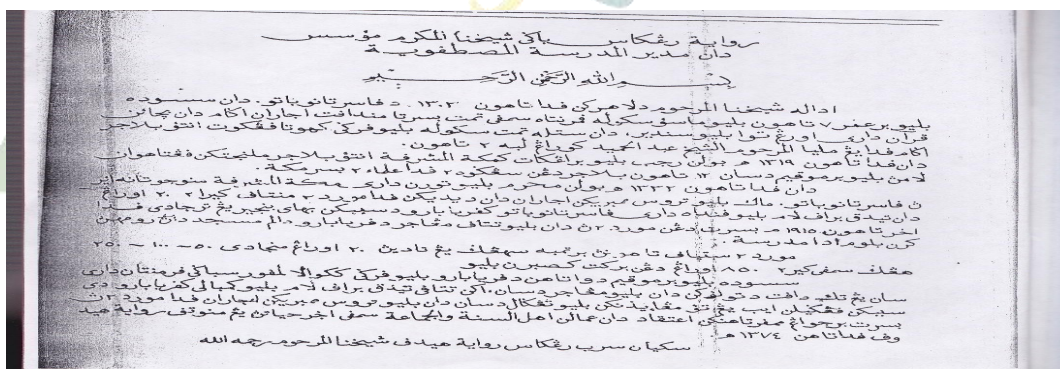 رواية رڠكاس سباكي شيخنا المكرم مؤسس
دان مدير المدرسة المصطفوية
بسم الله الرحمن الرحيم
اداله شيخنا المرحوم دلاهركن فدا تاهون ١٣٠٣ . د فاسر تانو باتو . دان سسوده
بليو برعمر ٧ تاهون بليو ماسق سكوله سمفي تمت بسرتا مندافت اجاران اكام دان بچائن
قرآن داري اورڠ توا بليو سندير ، دان ستله تمت سكوله بليو فركي كهوتا فڠكوت انتق بلاجر
اكام فدا المرحوم الشيخ عبد الحميد كورڠ لبه ٢ تاهون .
دان فدا تاهون ١٣١٩ هـ بولن رجب بليو برڠكت كمكة المشرفة انتق بلاجر
لامن بليو برمقيم دسان ١٢ تاهون بلاجر دڠن سڠكوه ٢ فدا علماء ٢ بسر مكة .
دان فدا تاهون ١٣٣٢ هـ بولن محرم بليو تورن داري مكة المشرفة
فاسر تانو باتو . بليو تروس ممبريكن اجاران دان ديديكن فدا مورد ٢ كيرا ٢ ٢٠ اورڠ
دان تيدق براف لام بليو فينده داري فاسر تانو باتو كفربا بارو دسببكن بنجير يڠ ترجادي فدا
اخر تاهون ١٩١٥ م بسرت دڠن مورد ٢ ڽ دان بليو تتاف مڠاجر دفربا بارو دالم مسجد دان رومه
كرن بلوم ادا مدرسة .
مورد ٢ برتمبه سهڠݢ يڠ تادين ٢٠ اورڠ منجادي ٥٠ – ١٠٠ – ٢٥٠
هڠݢ سمفي كيرا ٢ ٨٥٠ اورڠ دڠن بركت كصبرن بليو
سسوده بليو برمقيم دوا تاهن دفربا بارو بليو فركي ككوالا لمفور سباكي فرمنتان داري
سان دان بليو مڠاجر دسان ، اكن تتافي تيدق براف لام بليو كمبالي كفربا بارو
سببكن بليو تڠكل دسان دان بليو تروس ممبريكن اجاران فدا مورد ٢ ڽ
بسرت برجواڠ ممفرتاهنكن اعتقاد دان عملن اهل السنة والجماعة سمفي اخر حياتن
وف فدا تاهن ١٣٧٤ هـ
سكيان رڠكاس رواية هيدف شيخنا المرحوم رحمه الله